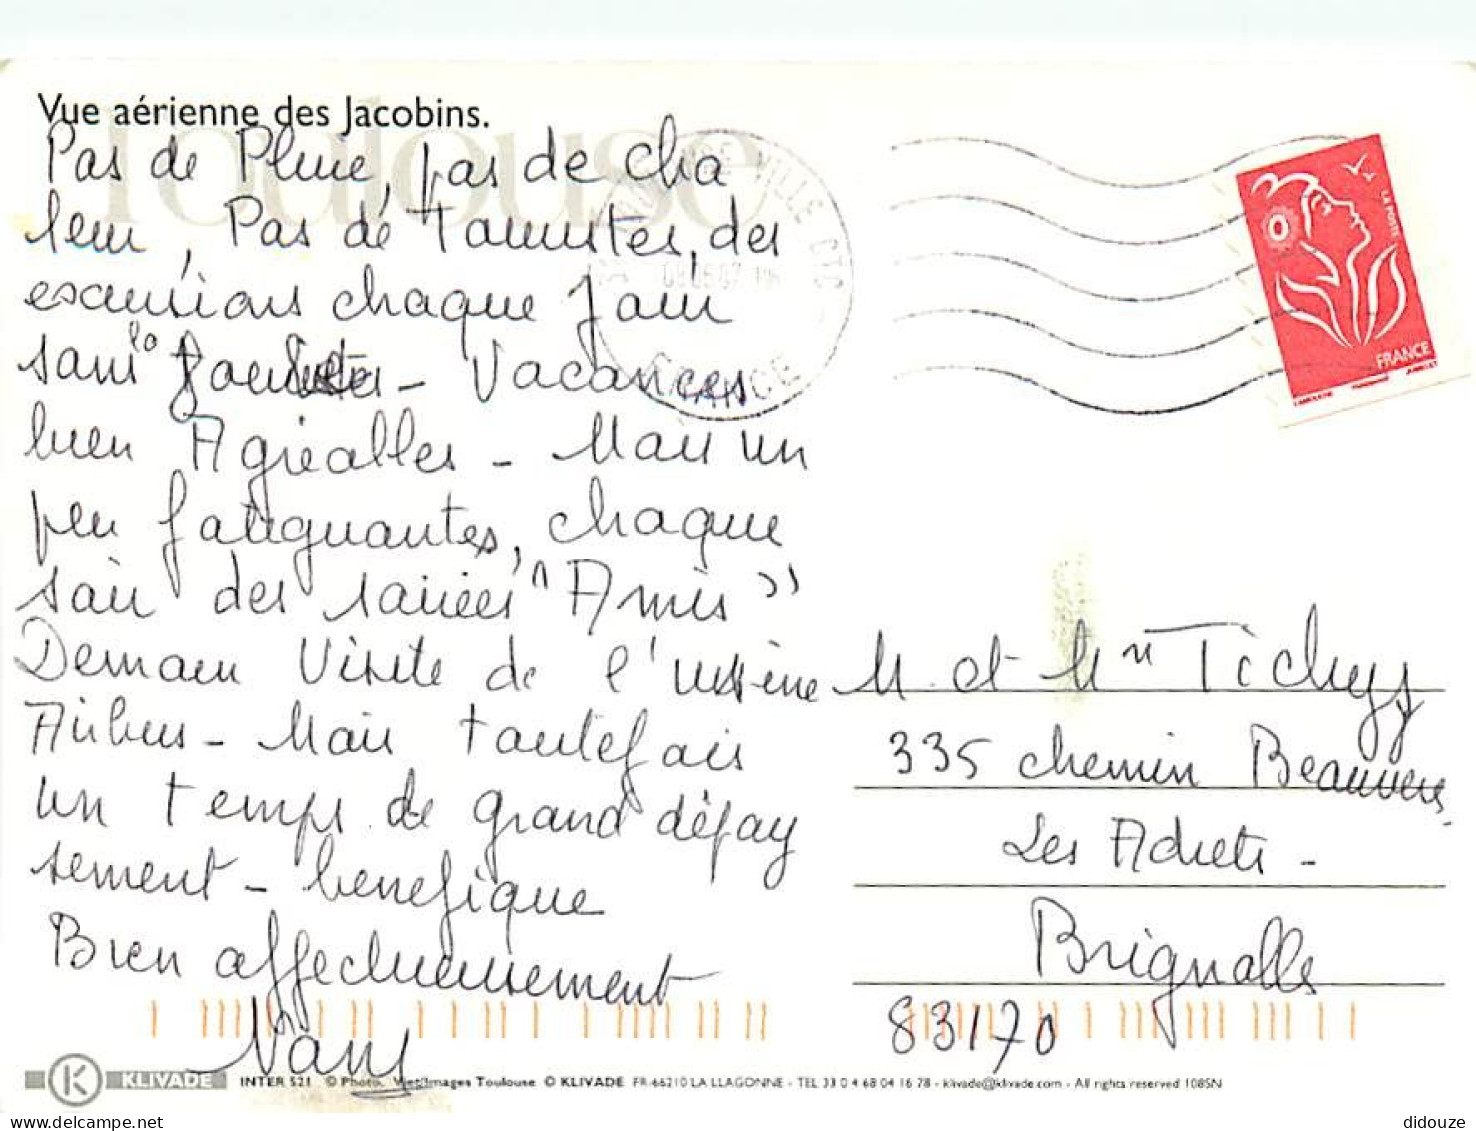 Toulouse
Vue aérienne des Jacobins.
Pas de Pluie, pas de cha
leur, Pas de Touristes, des
excursions chaque Jour
dans la Journée - Vacances
bien Agréables - Mais un
peu fatiguantes, chaque
soir des soirées "Amis"
Demain Visite de l'usine
Airbus - Mais toutefois
un temps de grand dépay
sement - benefique
Bien affectueusement
Nany
M. et Mm Tichys
335 chemin Beauvere
Les Adrets -
Brignolles
83170
TOULOUSE VILLE CTC
FRANCE
LA POSTE
FRANCE
KLIVADE INTER 521 © Photo. Images Toulouse © KLIVADE FR-66210 LA LLAGONNE - TEL 33 0 4 68 04 16 78 - klivade@klivade.com - All rights reserved 108SN
didouze